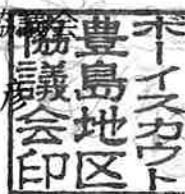 ボーイスカウト
豊島地区
協議会印